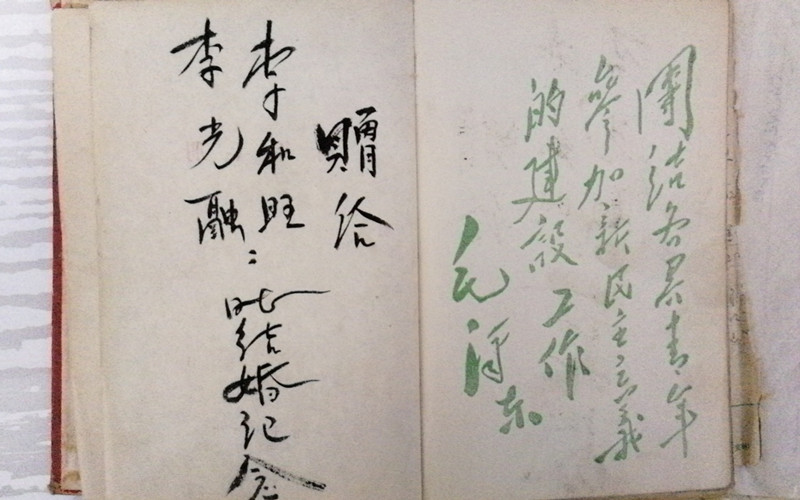 團結各界青年
參加新民主主義
的建設工作
毛澤東
贈给
李和旺
李光融：
结婚纪念